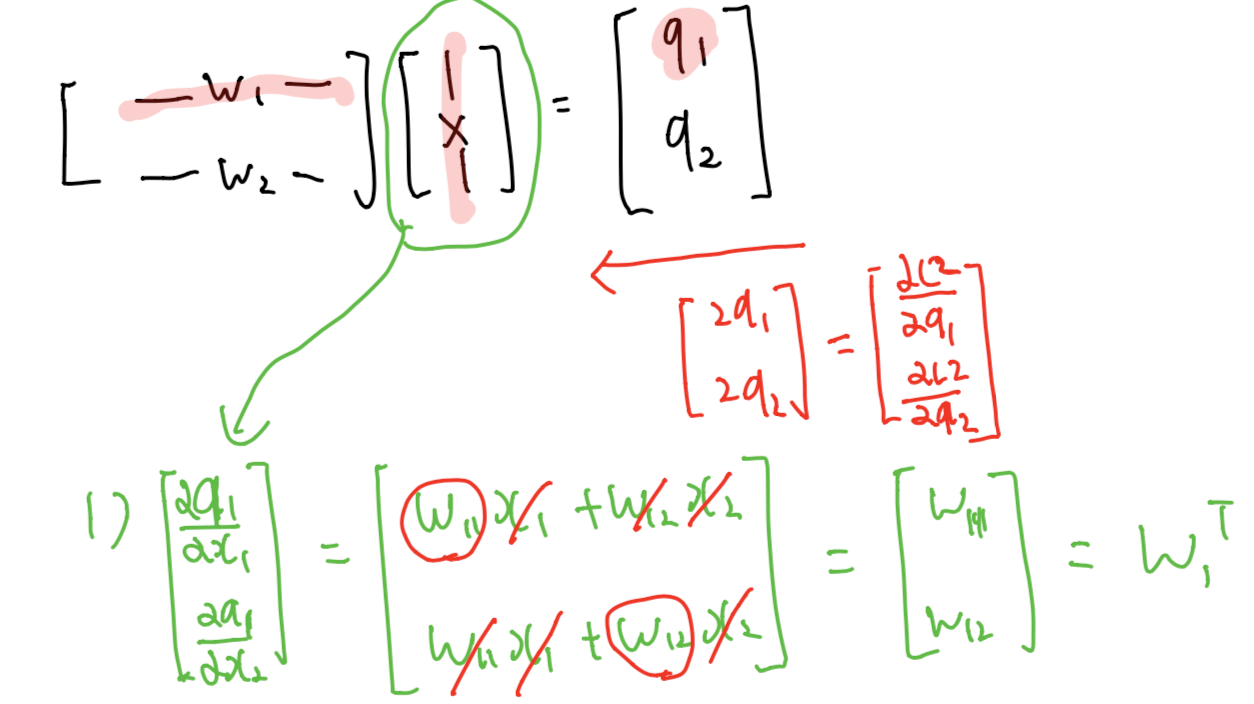 [ — W₁ — ; — W₂ - ] [ | ; X ; | ] = [ q₁ ; q₂ ]
[ 2q₁ ; 2q₂ ] = [ ∂L2/∂q₁ ; ∂L2/∂q₂ ]
1) [ ∂q₁/∂x₁ ; ∂q₁/∂x₂ ] = [ W₁₁ x₁ + W₁₂ x₂ ; W₁₁ x₁ + W₁₂ x₂ ] = [ W₁₁ ; W₁₂ ] = W₁ᵀ